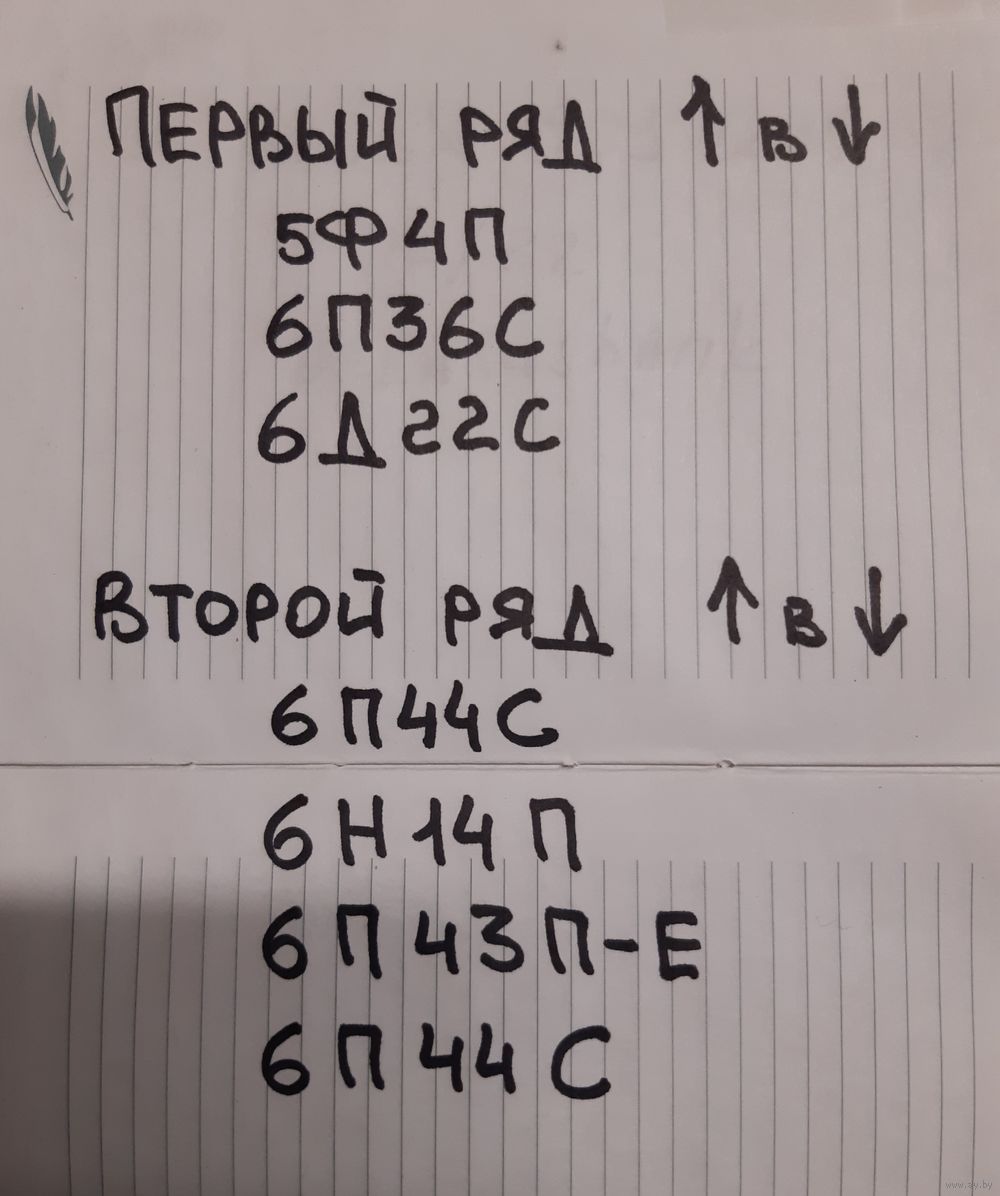 ПЕРВЫЙ РЯД ↑ В ↓
5Ф4П
6П36С
6Д22С
ВТОРОЙ РЯД ↑ В ↓
6П44С
6Н14П
6П43П-Е
6П44С
www.ay.by